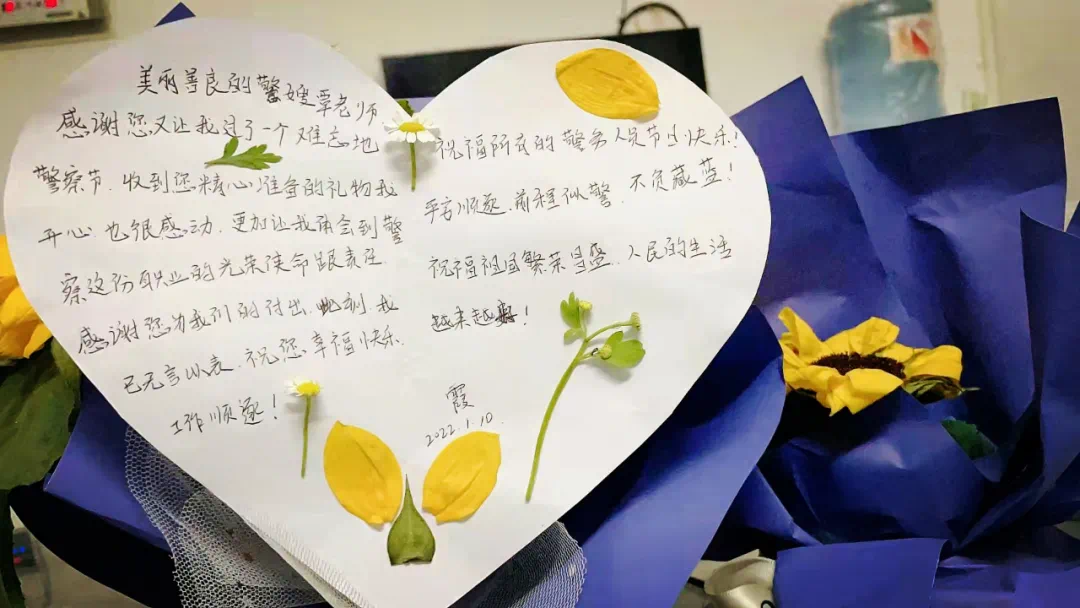 美丽善良的警嫂覃老师
感谢您又让我过了一个难忘地
警察节.收到您精心准备的礼物我
开心也很感动.更加让我体会到警
察这份职业的光荣使命跟责任.
感谢您为我们的付出.此刻.我
已无言以表.祝您幸福快乐
工作顺遂！
祝福所有的警务人员节日快乐！
平安顺遂.前程似警.不负藏蓝！
祝福祖国繁荣昌盛.人民的生活
越来越好！
霞
2022.1.10